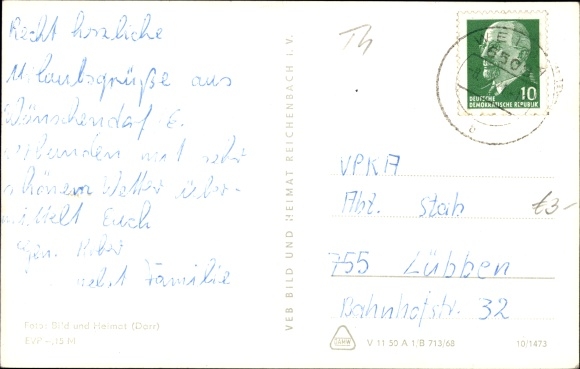 Recht herzliche
Urlaubsgrüße aus
Wünschendorf E.
verbunden mit sehr
schönem Wetter über-
mittelt Euch
Gen.
nebst Familie
Foto: Bild und Heimat (Darr)
EVP -,15 M
VEB BILD UND HEIMAT REICHENBACH I. V.
Th
10
DEUTSCHE
DEMOKRATISCHE REPUBLIK
VPKA
Abt. Stab
€3-
755 Lübben
Bahnhofstr. 32
V 11 50 A 1/B 713/68
10/1473